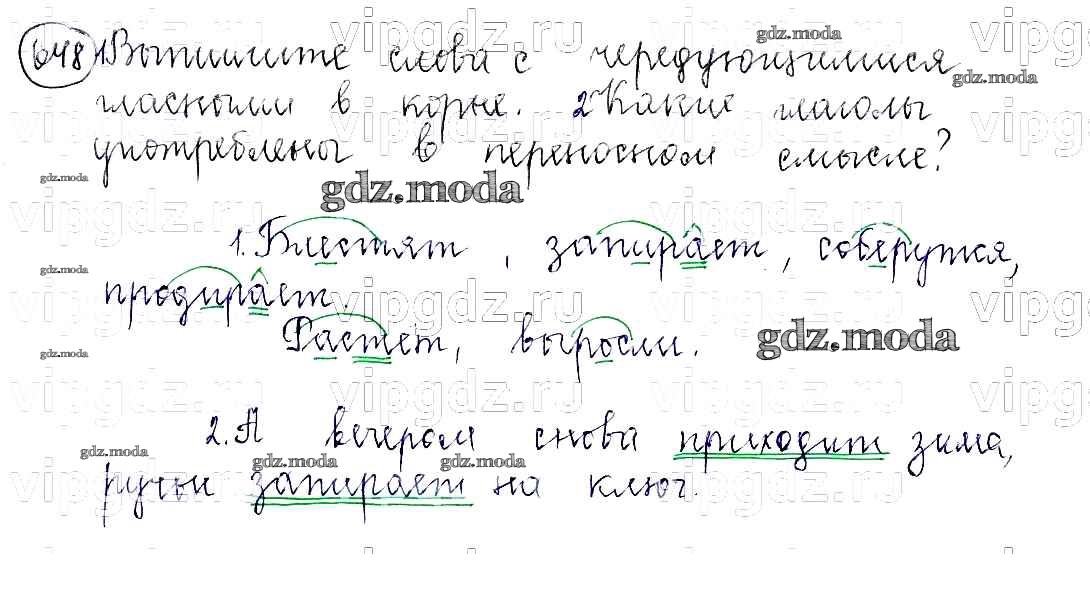 648 1Выпишите слова с чередующимися
гласными в корне. 2 Какие глаголы
употреблены в переносном смысле?
gdz.moda
1. Блестят, запирает, соберутся,
продирает.
Растет, выросли.
gdz.moda
2. А вечером снова приходит зима,
ручьи запирает на ключ.